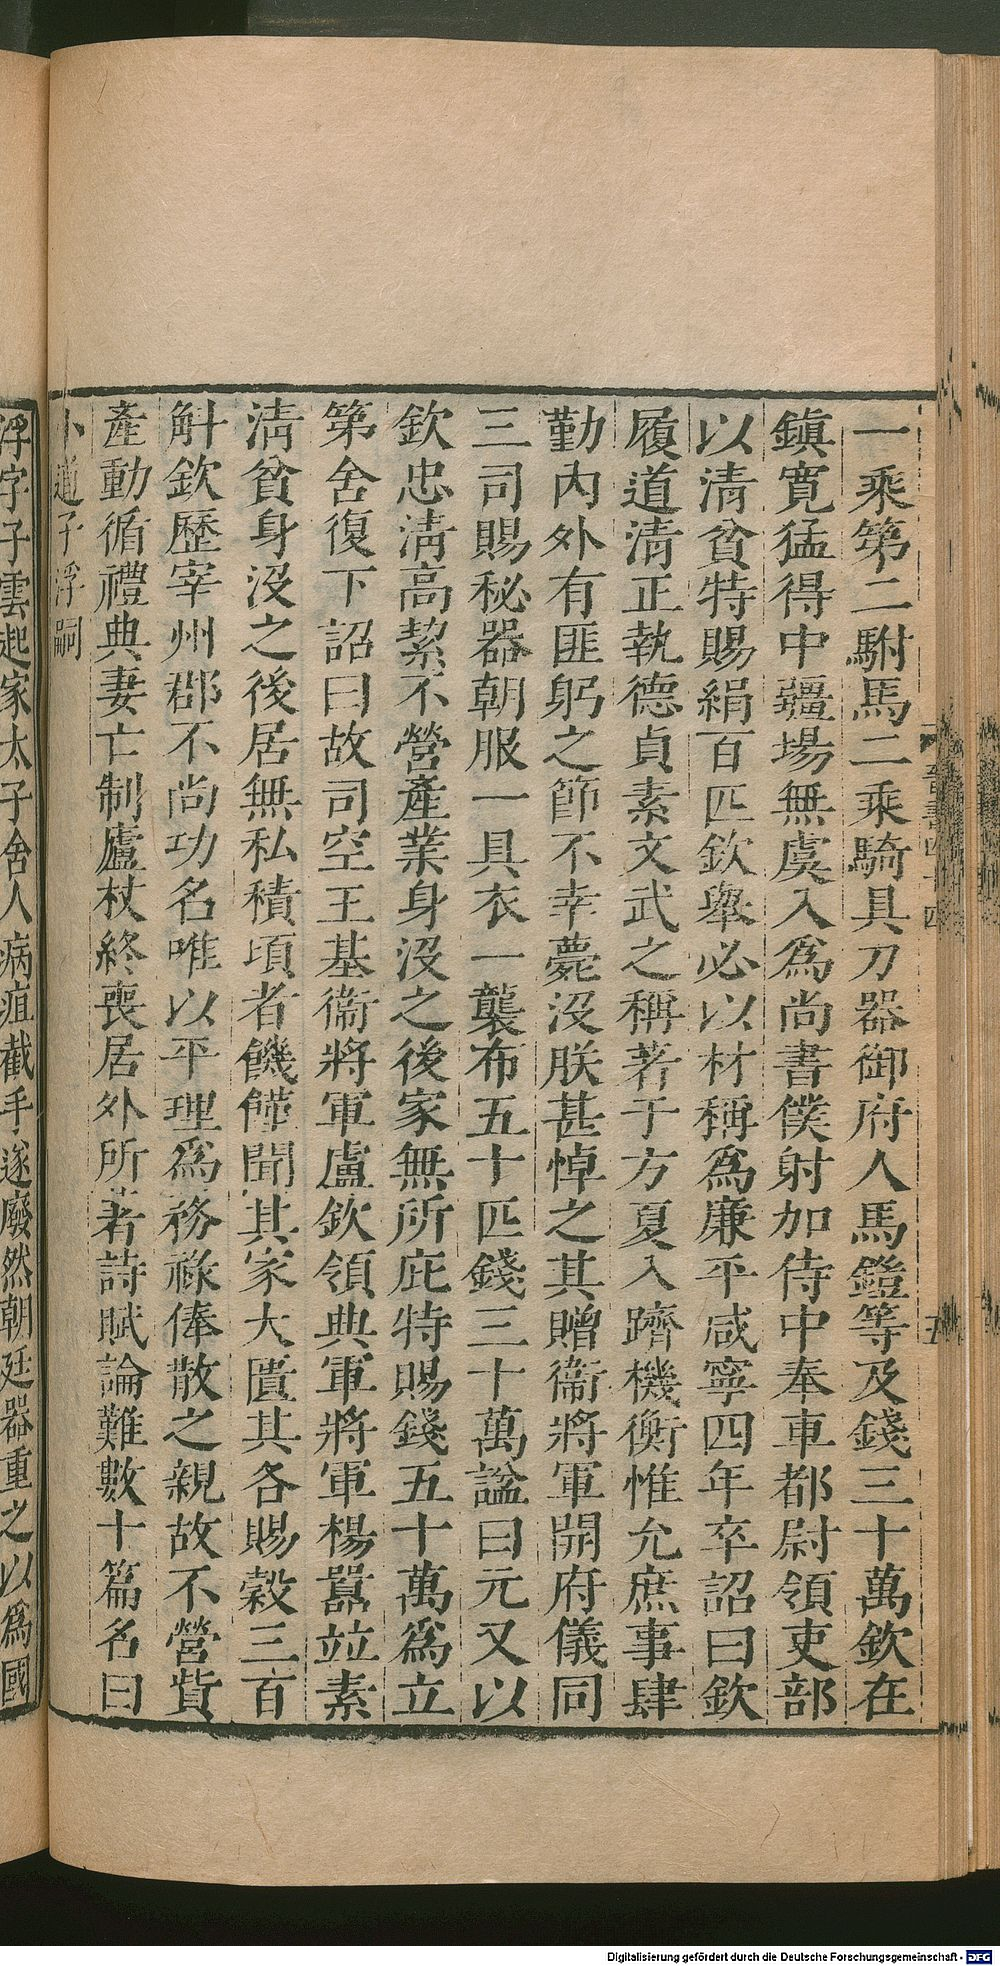 一乘第二駙馬二乘騎具刀器御府人馬鎧等及錢三十萬欽在
鎮寬猛得中疆場無虞入爲尚書僕射加侍中奉車都尉領吏部
以清貧特賜絹百匹欽舉必以材稱爲廉平咸寧四年卒詔曰欽
履道清正執德貞素文武之稱著于方夏入躋機衡惟允庶事肆
勤內外有匪躬之節不幸薨沒朕甚悼之其贈衞將軍開府儀同
三司賜秘器朝服一具衣一襲布五十匹錢三十萬諡曰元又以
欽忠清高絜不營產業身沒之後家無所庇特賜錢五十萬爲立
第舍復下詔曰故司空王基衞將軍盧欽領典軍將軍楊囂竝素
清貧身沒之後居無私積頃者饑饉聞其家大匱其各賜穀三百
斛欽歷宰州郡不尚功名唯以平理爲務祿俸散之親故不營貲
產動循禮典妻亡制廬杖終喪居外所著詩賦論難數十篇名曰
小道子浮嗣
浮字子雲起家太子舍人病疽截手遂廢然朝廷器重之以爲國
晉書四十四
五
Digitalisierung gefördert durch die Deutsche Forschungsgemeinschaft - DFG